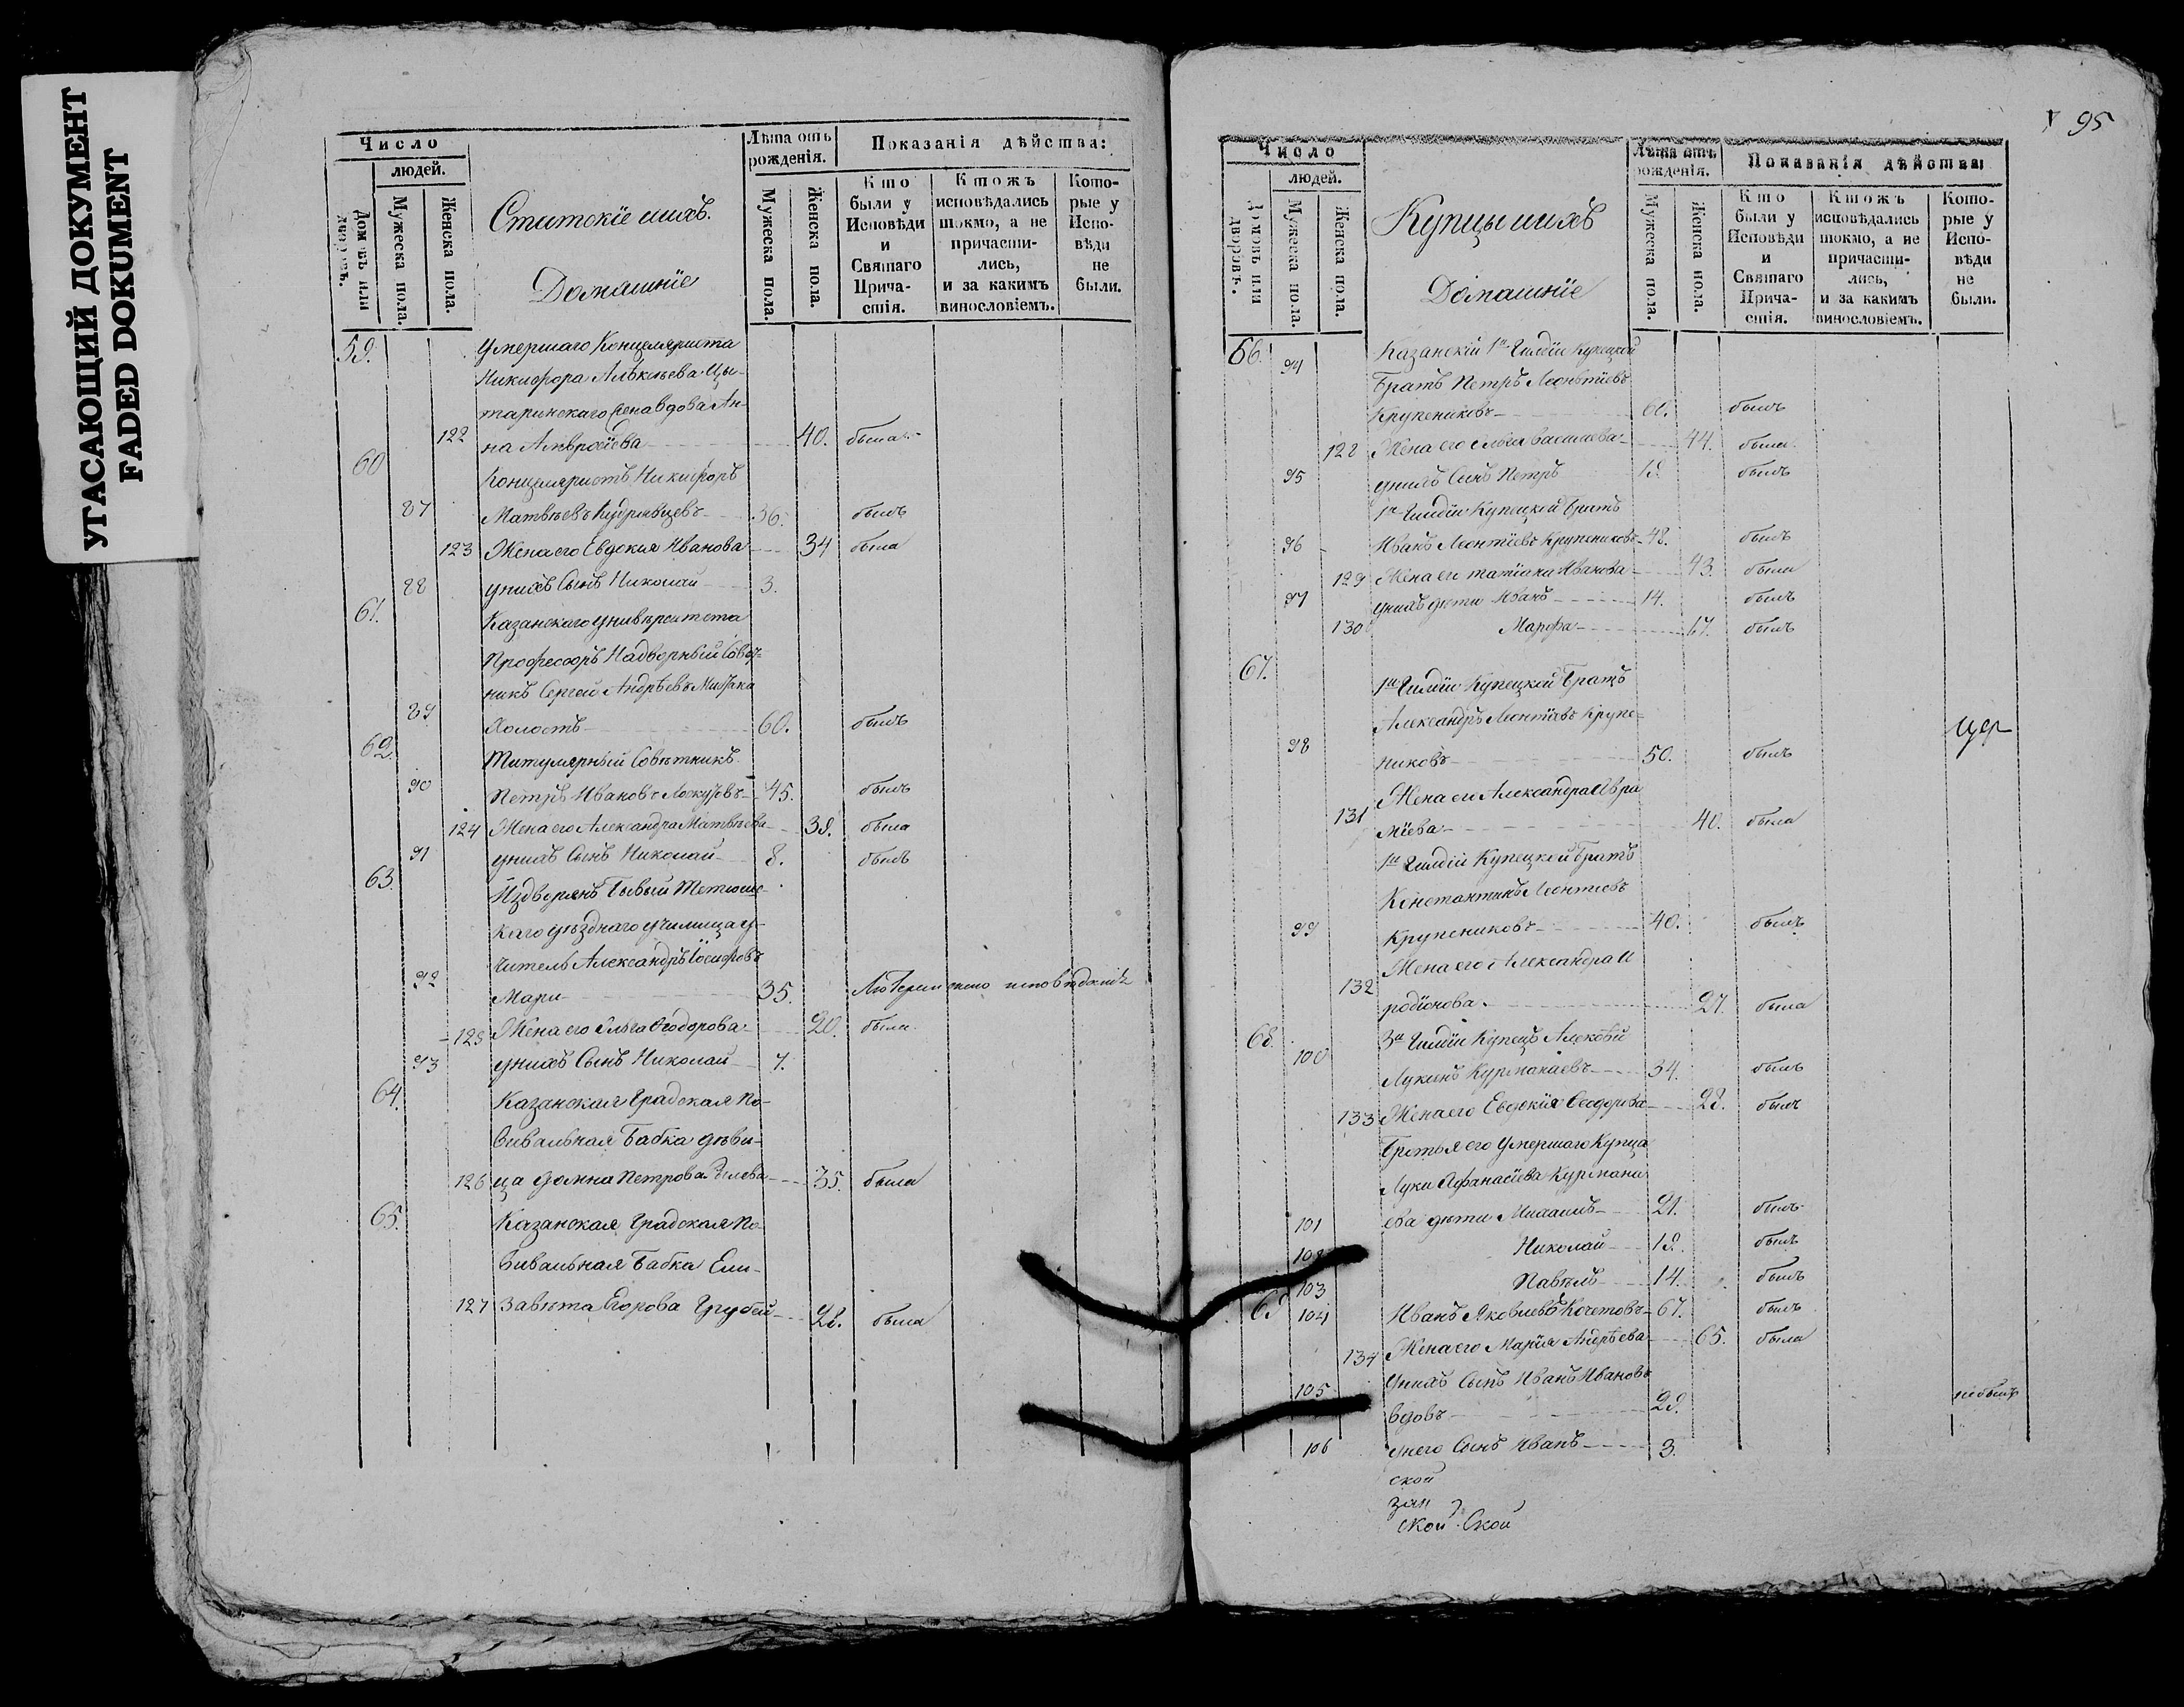 УГАСАЮЩИЙ ДОКУМЕНТ
FADED DOKUMENT
Число
людей.
Домовъ или дворовъ.
Мужеска пола.
Женска пола.
Статскіе и ихъ
Домашніе
Лѣта отъ рожденія.
Мужеска пола.
Женска пола.
Показанія дѣйства:
Кто были у Исповѣди и Святаго Прича-стія.
Ктожъ исповѣдались токмо, а не причасти-лись, и за какимъ винословіемъ.
Кото-рые у Испо-вѣди не были.
59. Умершаго Канцеляриста
Никифора Алексѣева Цы-
таринскаго жена вдова Ан-
122 на 40. была
60 Канцеляристъ Никифоръ
87 Матвѣевъ Кудрявцевъ 36. былъ
123 Жена его Евдокия Иванова 34 была
88 у нихъ Сынъ Николай 3.
61. Казанскаго университета
Профессоръ Надворный Совѣт-
никъ Сергей Андрѣевъ
89 Холостъ 60. былъ
62. Титулярный Совѣтникъ
90 Петръ Ивановъ 45. былъ
124 Жена его Александра Матвѣева 38. была
91 у нихъ Сынъ Николай 8. былъ
63. Издворянъ бывый Тетюшс-
каго уѣзднаго училища у-
читель Александръ Іосифовъ
92 Мари 35. Лютеранскаго исповѣданія
125 Жена его Ольга Ѳеодорова 20. была
93 у нихъ Сынъ Николай 7.
64. Казанская Градская По-
вивальная Бабка дѣви-
126 ца Домна Петрова 35. была
65. Казанская Градская По-
вивальная Бабка Ели-
127 завѣта Егорова 28. была
95
Число
людей.
Домовъ или дворовъ.
Мужеска пола.
Женска пола.
Купцы и ихъ
Домашніе
Лѣта отъ рожденія.
Мужеска пола.
Женска пола.
Показанія дѣйства:
Кто были у Исповѣди и Святаго Прича-стія.
Ктожъ исповѣдались токмо, а не причасти-лись, и за какимъ винословіемъ.
Кото-рые у Испо-вѣди не были.
66. 94 Казанскій 1й Гилдіи Купецкой
Братъ Петръ Леонтіевъ
Крупениковъ 60. былъ
128 Жена его Васильева 44. была
95 у нихъ Сынъ Петръ былъ
1й Гилдіи Купецкой Братъ
96 Иванъ Леонтіевъ Крупениковъ 48. былъ
129 Жена его татіана Иванова 43. была
97 у нихъ дѣти Иванъ 14. былъ
130 Марфа 17. былъ
67. 1й Гилдіи Купецкой Братъ
Александръ Леонтіевъ Крупе-
98 никовъ 50. былъ
131 Жена его Александра Авра
міева 40. была
1й Гилдіи Купецкой Братъ
Констант​инъ Леонтіевъ
99 Крупениковъ 40. былъ
132 Жена его Александра И
родіонова. 27. была
68. 100 3й Гилдіи Купецъ Алексѣй
Лукинъ Курманаевъ 34. былъ
133 Жена его Евдокія Ѳеодорова 28. былъ
Братья его Умершаго Купца
Луки Афанасіева Курмана
101 ева дѣти Михаилъ 21. былъ
102 Николай былъ
103 Павелъ 14. былъ
69 104 Иванъ Яковлевъ Кочетовъ 67. былъ
134 Жена его Марія Андрѣева 65. была
105 У нихъ Сынъ Иванъ Ивановъ
вдовъ 29. не былъ
106 у него Сынъ Иванъ 3.
ской
зан
ской Ской